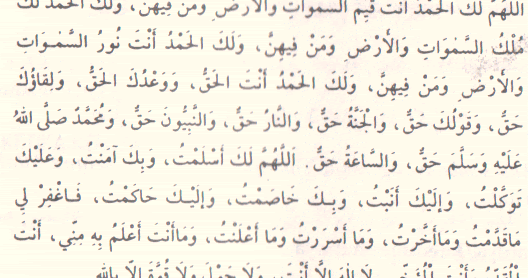 اللَّهُمَّ لَكَ الْحَمْدُ أَنْتَ قَيِّمُ السَّمٰوَاتِ وَالْأَرْضِ وَمَنْ فِيهِنَّ، وَلَكَ الْحَمْدُ لَكَ
مُلْكُ السَّمٰوَاتِ وَالْأَرْضِ وَمَنْ فِيهِنَّ، وَلَكَ الْحَمْدُ أَنْتَ نُورُ السَّمٰوَاتِ
وَالْأَرْضِ وَمَنْ فِيهِنَّ، وَلَكَ الْحَمْدُ أَنْتَ الْحَقُّ، وَوَعْدُكَ الْحَقُّ، وَلِقَاؤُكَ
حَقٌّ، وَقَوْلُكَ حَقٌّ، وَالْجَنَّةُ حَقٌّ، وَالنَّارُ حَقٌّ، وَالنَّبِيُّونَ حَقٌّ، وَمُحَمَّدٌ صَلَّى اللهُ
عَلَيْهِ وَسَلَّمَ حَقٌّ، وَالسَّاعَةُ حَقٌّ. اَللَّهُمَّ لَكَ أَسْلَمْتُ، وَبِكَ آمَنْتُ، وَعَلَيْكَ
تَوَكَّلْتُ، وَإِلَيْكَ أَنَبْتُ، وَبِكَ خَاصَمْتُ، وَإِلَيْكَ حَاكَمْتُ، فَاغْفِرْ لِي
مَاقَدَّمْتُ وَمَاأَخَّرْتُ، وَمَا أَسْرَرْتُ وَمَا أَعْلَنْتُ، وَمَاأَنْتَ أَعْلَمُ بِهِ مِنِّي، أَنْتَ
الْمُقَدِّمُ وَأَنْتَ الْمُؤَخِّرُ، لَا إِلٰهَ إِلَّا أَنْتَ، وَلَا حَوْلَ وَلَا قُوَّةَ إِلَّا بِاللهِ